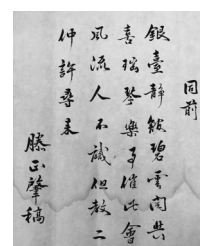 同前
銀臺靜碧雲開共
喜瑤琴樂事催此會
風流人不識但教二
仲許尋來
滕正肇稿